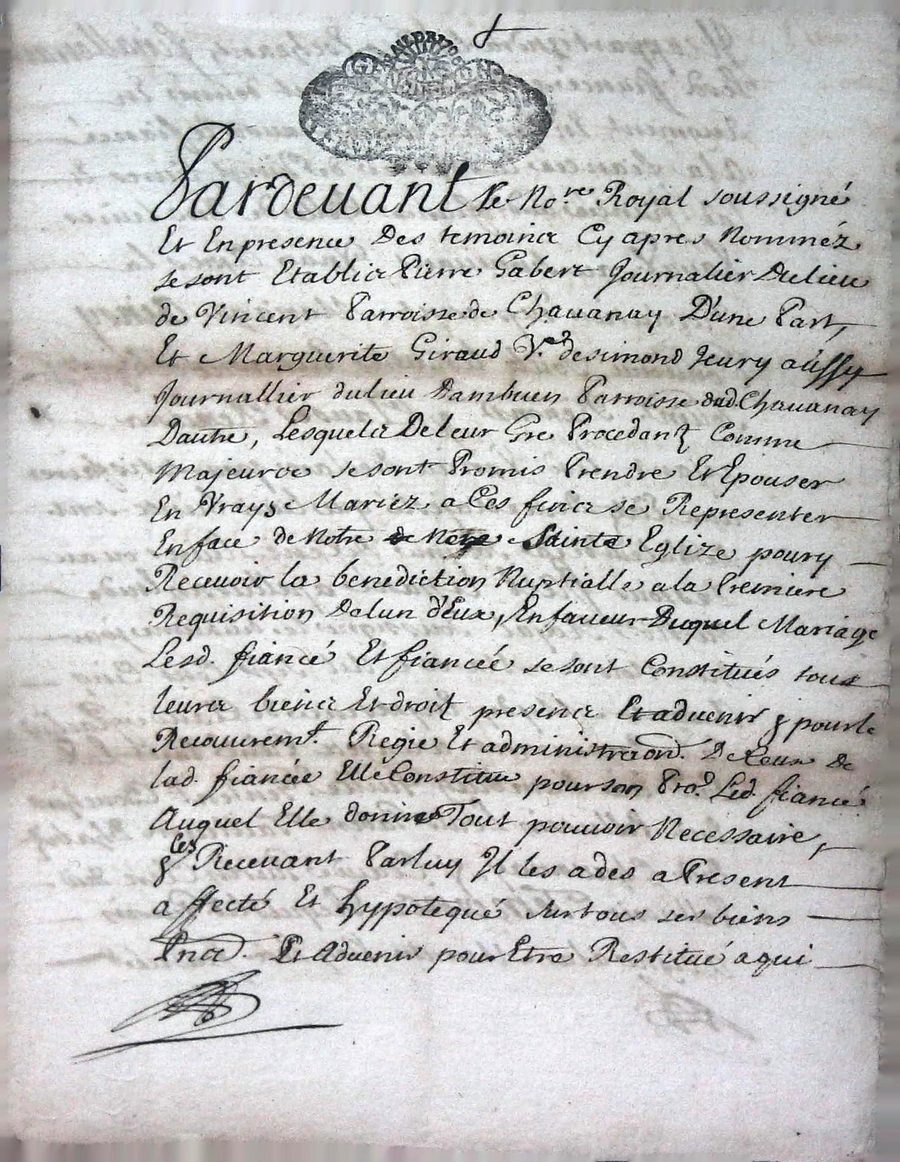 Pardevant le No.re Royal soussigné
Et En presence Des temoins Cy apres Nomméz
se sont Etablis Pierre Gabert Journalier Du lieu
de Vincent Parroisse de Chavanay D'une Part,
Et Marguerite Giraud V.e de simond Jeury aussy
Journallier du lieu Dambuen Parroisse dud Chavanay
Dautre, Lesquels De leur Gre Procedant Comme
Majeurs se sont Promis Prendre Et Epouser
En Vrays Mariez a Ces fins se Representer
En face de Notre Sainte Eglize pour y
Recevoir la benediction Nuptialle a la Premiere
Requisition De lun d'Eux, En faveur Duquel Mariage
Lesd. fiancé Et fiancée se sont Constitués tous
leurs biens Et droit presens Et advenir & pour le
Recouvrem.t Regie Et administraon. De Ceux de
lad. fiancée Elle Constitue pour son Pro.r Led. fiancé
Auquel Elle donne Tout pouvoir Necessaire,
& les Recevant Par luy Il les a des a Present
affecté Et hypotequé sur tous ses biens
Pns. Et Advenir pour Etre Restitué a qui